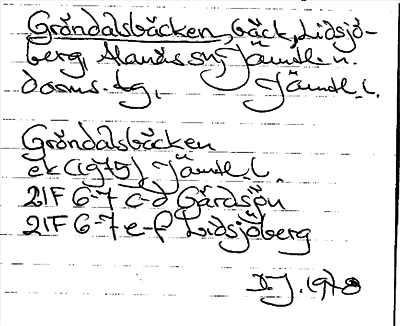 Gröndalsbäcken, bäck, Lidsjö-
berg, Alanäs sn, Jämtl. n.
doms. tg, Jämtl. l.
Gröndalsbäcken
ek (1975) Jämtl. l.
21F 6-7 c-d Gårdsjön
21F 6-7 e-f Lidsjöberg
1978